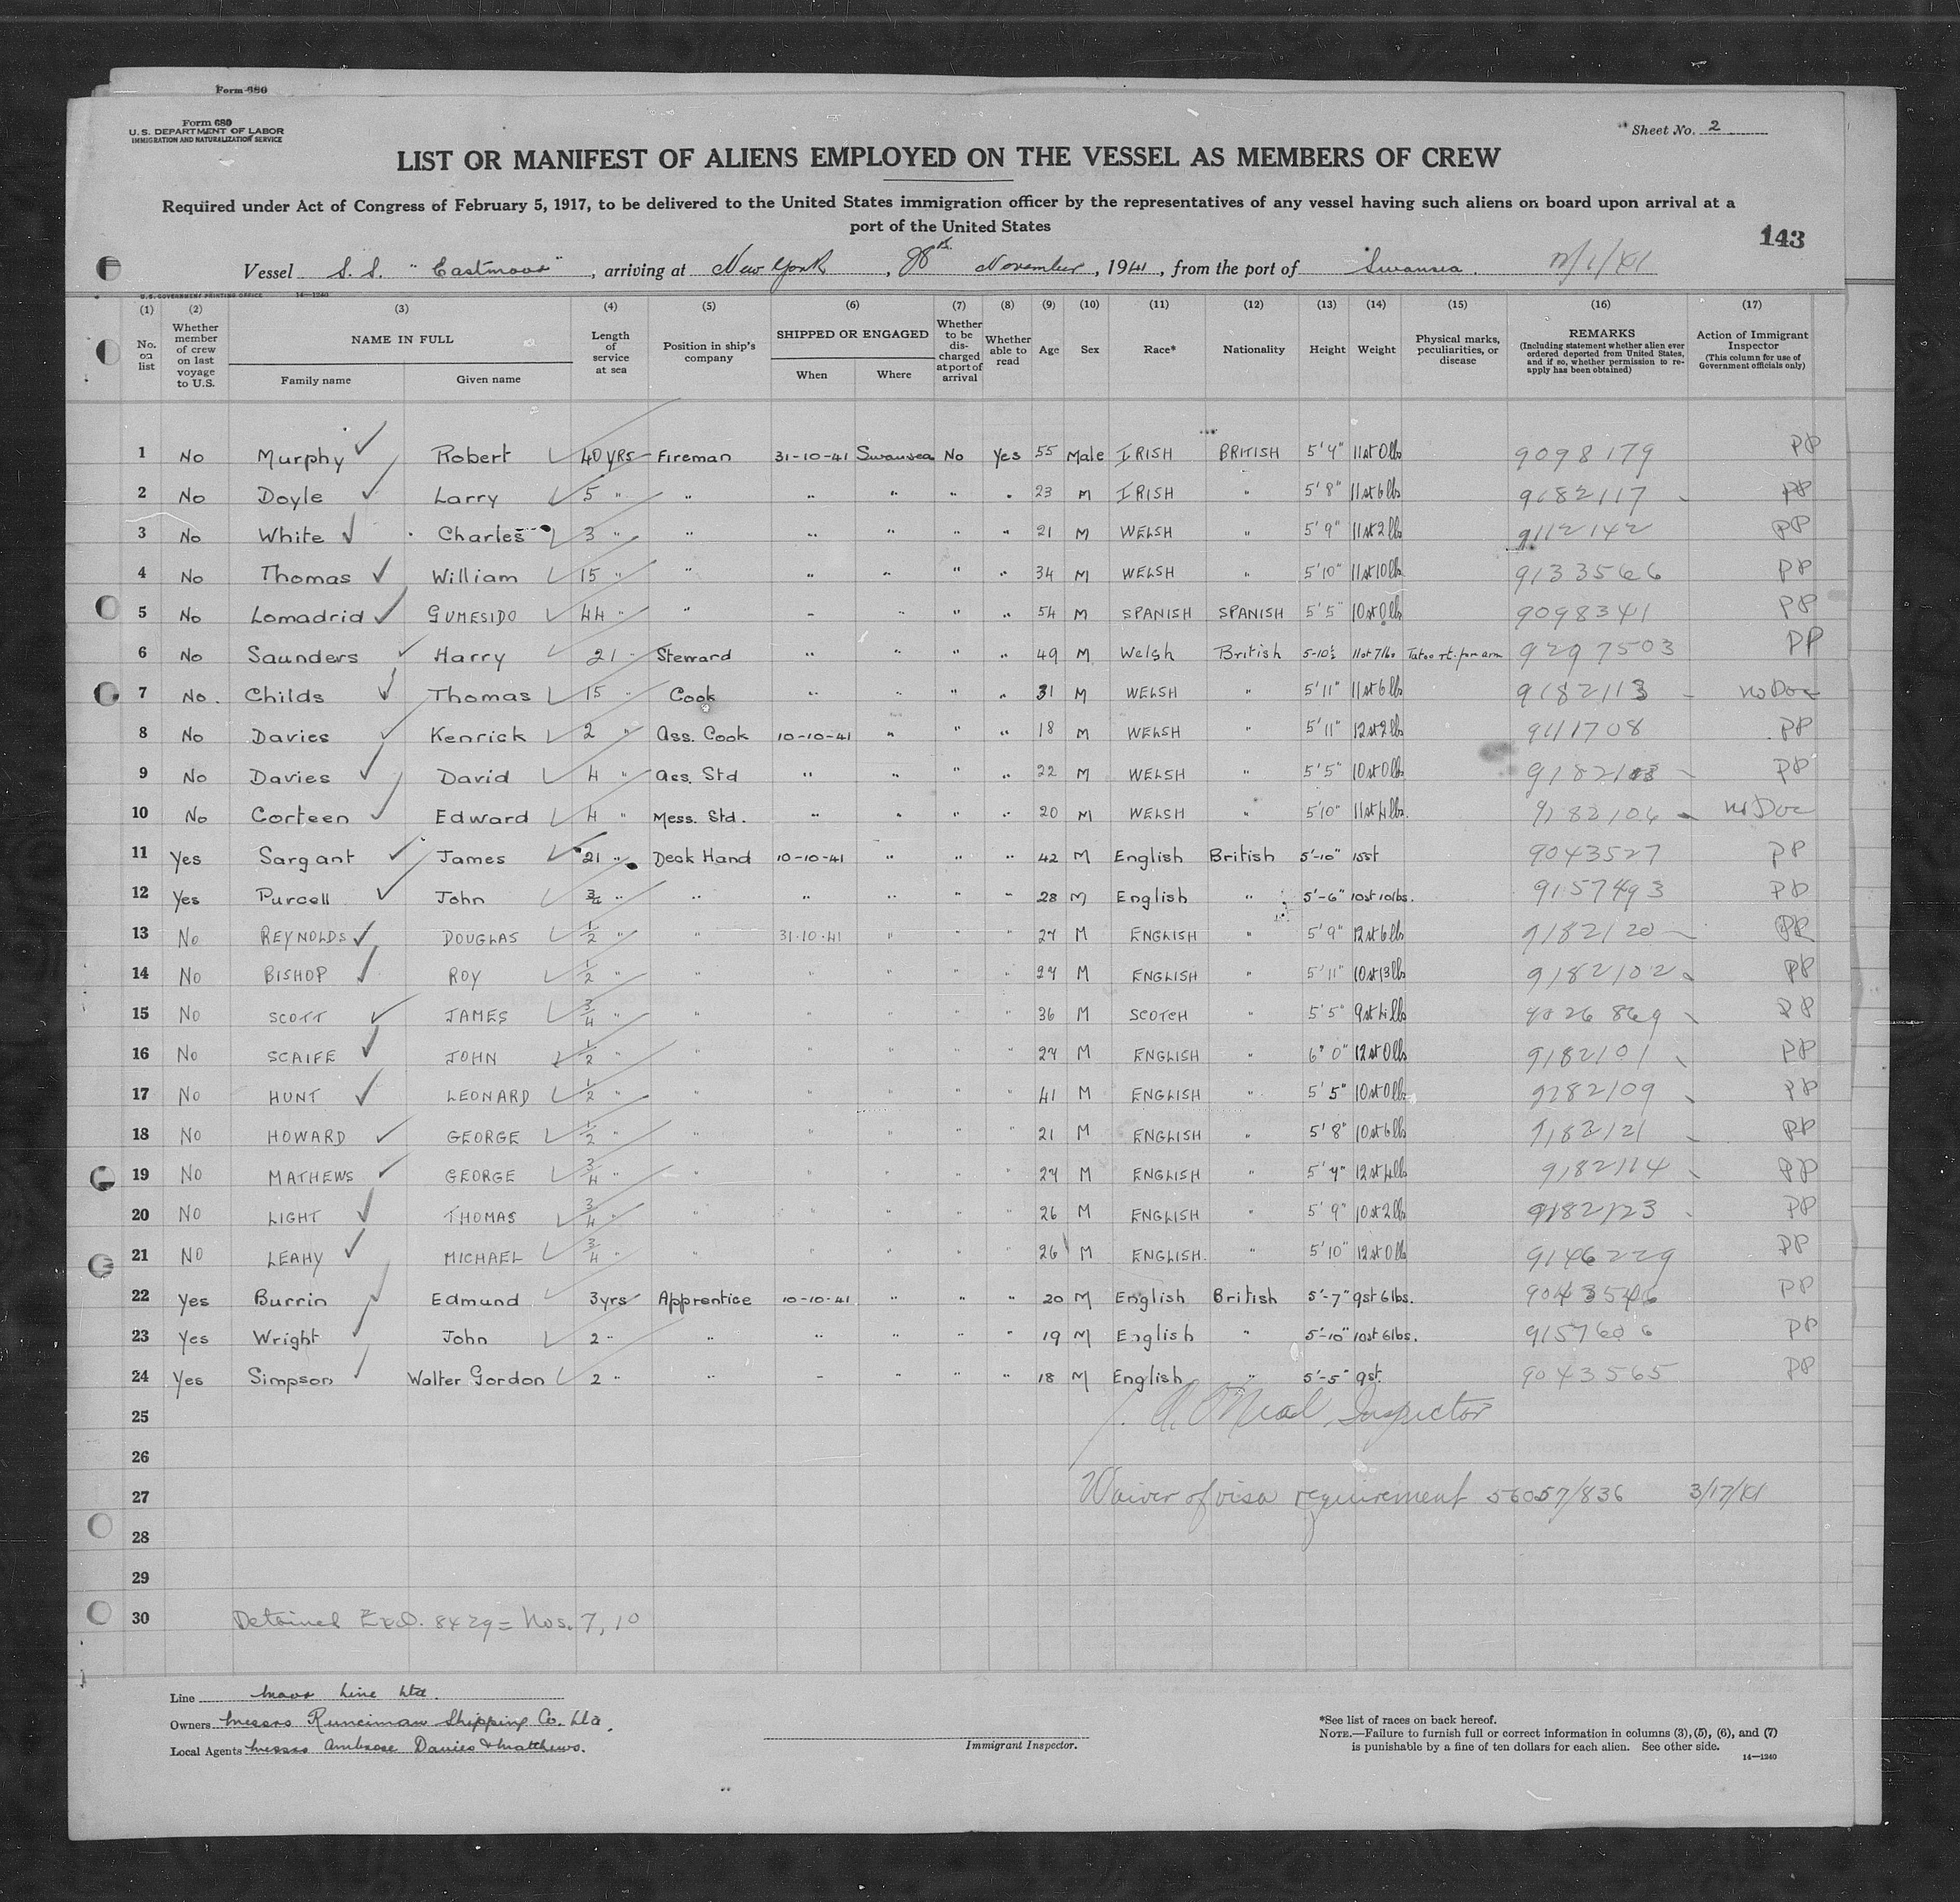 Form 680
Form 680
U.S. DEPARTMENT OF LABOR
IMMIGRATION AND NATURALIZATION SERVICE
Sheet No. 2
LIST OR MANIFEST OF ALIENS EMPLOYED ON THE VESSEL AS MEMBERS OF CREW
Required under Act of Congress of February 5, 1917, to be delivered to the United States immigration officer by the representatives of any vessel having such aliens on board upon arrival at a
port of the United States
143
Vessel S.S. "Eastmoor", arriving at New York, November, 1941, from the port of Swansea.
U.S. GOVERNMENT PRINTING OFFICE 14—1240
(1) (2) (3) (4) (5) (6) (7) (8) (9) (10) (11) (12) (13) (14) (15) (16) (17)
No. on list
Whether member of crew on last voyage to U.S.
NAME IN FULL
Family name
Given name
Length of service at sea
Position in ship's company
SHIPPED OR ENGAGED
When
Where
Whether to be discharged at port of arrival
Whether able to read
Age
Sex
Race*
Nationality
Height
Weight
Physical marks, peculiarities, or disease
REMARKS
(Including statement whether alien ever ordered deported from United States, and if so, whether permission to reapply has been obtained)
Action of Immigrant Inspector
(This column for use of Government officials only)
1 No Murphy Robert 40 YRS Fireman 31-10-41 Swansea No Yes 55 Male IRISH BRITISH 5'4" 11st 0lbs 9098179 PP
2 No Doyle Larry 5 " " " " " " 23 M IRISH " 5'8" 11st 6lbs 9182117 PP
3 No White Charles 3 " " " " " " 21 M WELSH " 5'9" 11st 2lbs 9112142 PP
4 No Thomas William 15 " " " " " " 34 M WELSH " 5'10" 11st 10lbs 9133566 PP
5 No Lomadrid GUMESIDO 44 " " - " " " 54 M SPANISH SPANISH 5'5" 10st 0lbs 9098341 PP
6 No Saunders Harry 21 " Steward " " " " 49 M Welsh British 5-10½ 11st 7lbs Tatoo rt. forearm 9297503 PP
7 No. Childs Thomas 15 " Cook " " " " 31 M WELSH " 5'11" 11st 6lbs 9182113 no Doc
8 No Davies Kenrick 2 " Ass. Cook 10-10-41 " " " 18 M WELSH " 5'11" 12st 2lbs 9111708 PP
9 No Davies David 4 " Ass. Std " " " " 22 M WELSH " 5'5" 10st 0lbs PP
10 No Corteen Edward 4 " Mess. Std. " " " " 20 M WELSH " 5'10" 11st 4lbs. 9182106 no Doc
11 Yes Sargant James 21 " Deck Hand 10-10-41 " " " 42 M English British 5'-10" 10st 9043527 PP
12 Yes Purcell John ¾ " " " " " " 28 M English " 5'-6" 10st 10lbs. 9157493 PP
13 No REYNOLDS DOUGLAS ½ " " 31-10-41 " " " 27 M ENGLISH " 5'9" 12st 6lbs 9182120 PP
14 No BISHOP ROY ½ " " " " " " 27 M ENGLISH " 5'11" 10st 13lbs 9182102 PP
15 No SCOTT JAMES ¾ " " " " " " 36 M SCOTCH " 5'5" 9st 4lbs PP
16 No SCAIFE JOHN ½ " " " " " " 27 M ENGLISH " 6'0" 12st 0lbs 9182101 PP
17 No HUNT LEONARD ½ " " " " " " 41 M ENGLISH " 5'5" 10st 0lbs 9182109 PP
18 No HOWARD GEORGE ½ " " " " " " 21 M ENGLISH " 5'8" 10st 6lbs 9182121 PP
19 No MATHEWS GEORGE ¾ " " " " " " 27 M ENGLISH " 5'4" 12st 4lbs 9182114 PP
20 No LIGHT THOMAS ¾ " " " " " " 26 M ENGLISH " 5'9" 10st 2lbs 9182123 PP
21 No LEAHY MICHAEL ¾ " " " " " " 26 M ENGLISH. " 5'10" 12st 0lb 9146229 PP
22 Yes Burrin Edmund 3yrs Apprentice 10-10-41 " " " 20 M English British 5'-7" 9st 6lbs. 9043546 PP
23 Yes Wright John 2 " " " " " " 19 M English " 5'-10" 10st 6lbs. 9157606 PP
24 Yes Simpson Walter Gordon 2 " " - " " " 18 M English " 5'-5" 9st. 9043565 PP
25 O'Neal, Inspector
26
27 Waiver of visa requirement 56057/836 3/17/41
28
29
30 Detained Excl. 8429 = Nos. 7, 10
Line Moor Line Ltd.
Owners Messrs Runciman Shipping Co. Ltd.
Local Agents Messrs Ambrose Davies & Matthews.
Immigrant Inspector.
*See list of races on back hereof.
NOTE.—Failure to furnish full or correct information in columns (3), (5), (6), and (7)
is punishable by a fine of ten dollars for each alien. See other side.
14—1240